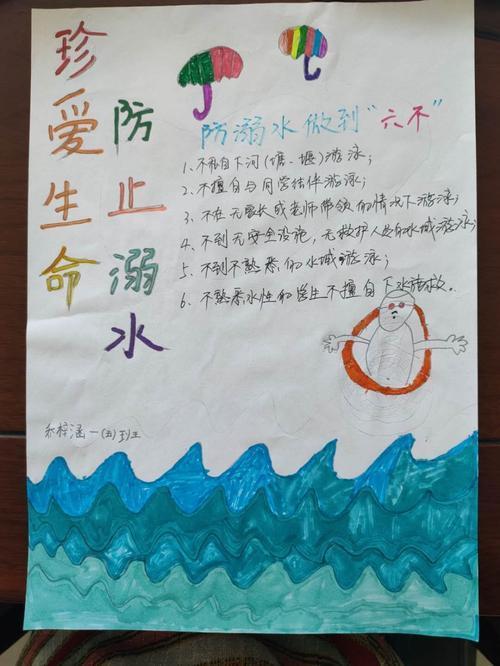 珍爱生命
防止溺水
防溺水做到"六不"
1、不私自下河(塘、堰)游泳;
2、不擅自与同学结伴游泳;
3、不在无家长或老师带领的情况下游泳;
4、不到无安全设施,无救护人员的水域游泳;
5、不到不熟悉的水域游泳;
6、不熟悉水性的学生不擅自下水施救。
梓涵一(五)班